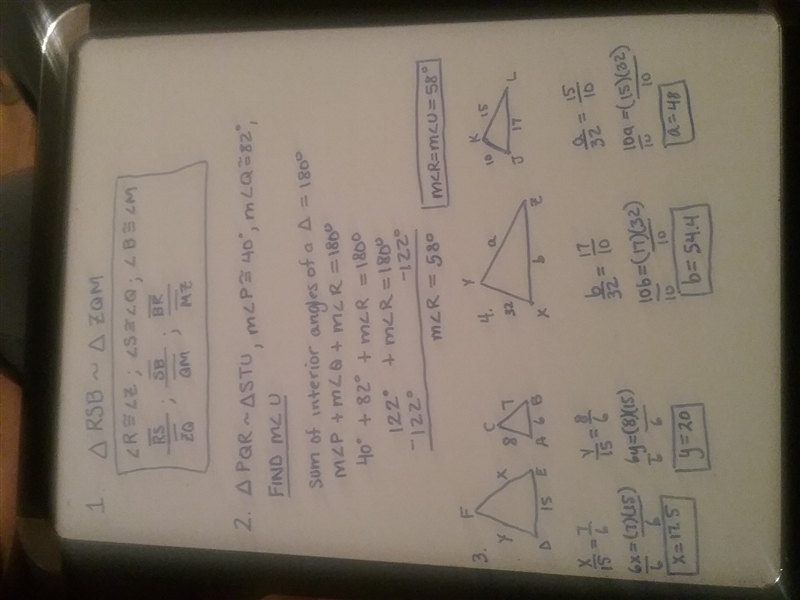 1 △RSB ~ △ZQM
∠R≅∠Z ; ∠S≅∠Q ; ∠B≅∠M
RS/ZQ ; SB/QM ; BR/MZ
2. △PQR ~ △STU, m∠P≅40°, m∠Q≅82°,
FIND m∠U
Sum of interior angles of a △ = 180°
m∠P + m∠Q + m∠R = 180°
40° + 82° + m∠R = 180°
122° + m∠R = 180°
-122° -122°
m∠R = 58°
m∠R = m∠U = 58°
3.
F
Y X
D 15 E
C
8 7
A 6 B
x/15 = 7/6
6x/6 = (7)(15)/6
x = 17.5
y/15 = 8/6
6y/6 = (8)(15)/6
y = 20
4.
Y
32 a
X b Z
K
10 15
J 17 L
b/32 = 17/10
10b/10 = (17)(32)/10
b = 54.4
a/32 = 15/10
10a/10 = (15)(32)/10
a = 48